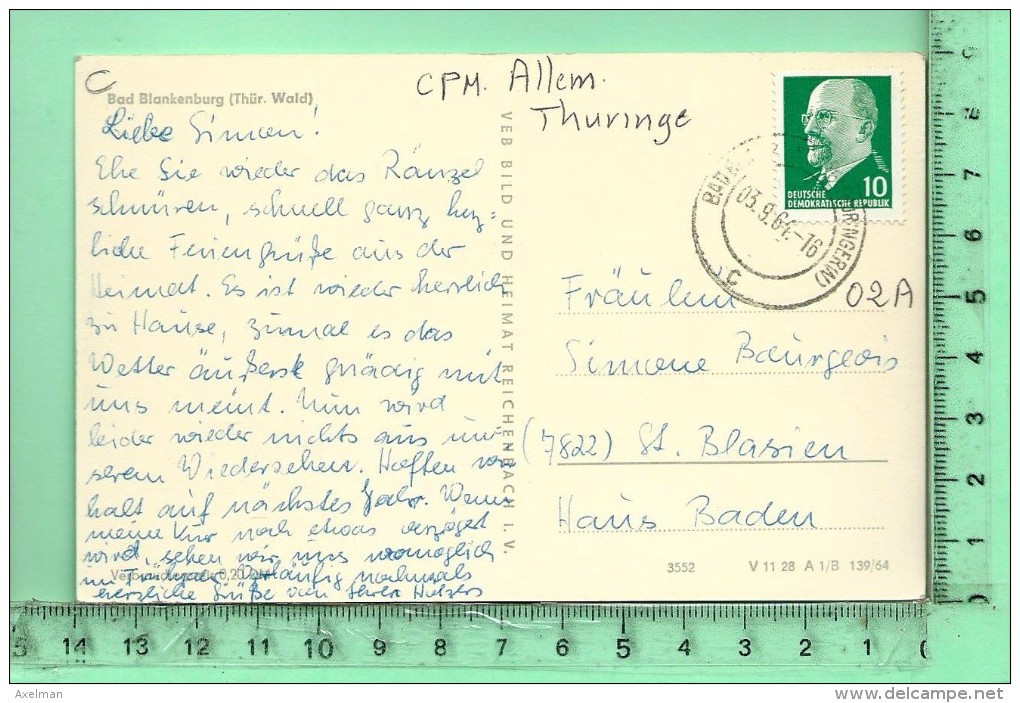 CPM. Allem.
Thuringe
Bad Blankenburg (Thür. Wald)
Liebe Simon!
Ehe Sie wieder das Ränzel
schnüren, schnell ganz herz=
liche Feriengrüße aus der
Heimat. Es ist wieder herrlich
zu Hause, zumal es das
Wetter äußerst gnädig mit
uns meint. Nun wird
leider wieder nichts aus un
serem Wiedersehen. Hoffen wir
halt auf nächstes Jahr. Wenn
meine Kur noch etwas verzögert
wird, sehen wir uns womöglich
im Frühjahr. Vorläufig nochmals
herzliche Grüße von Ihrer
Verbraucherpreis 0,20 DM
VEB BILD UND HEIMAT REICHENBACH I. V.
DEUTSCHE
DEMOKRATISCHE REPUBLIK
10
BAD
03.9.64.-16
THÜRINGER(W)
c
02A
Fräulein
Simone Bourgeois
(7822) St. Blasien
Haus Baden
3552 V 11 28 A 1/B 139/64
15 14 13 12 11 10 9 8 7 6 5 4 3 2 1 0
9 8 7 6 5 4 3 2 1 0
Axelman
www.delcampe.net